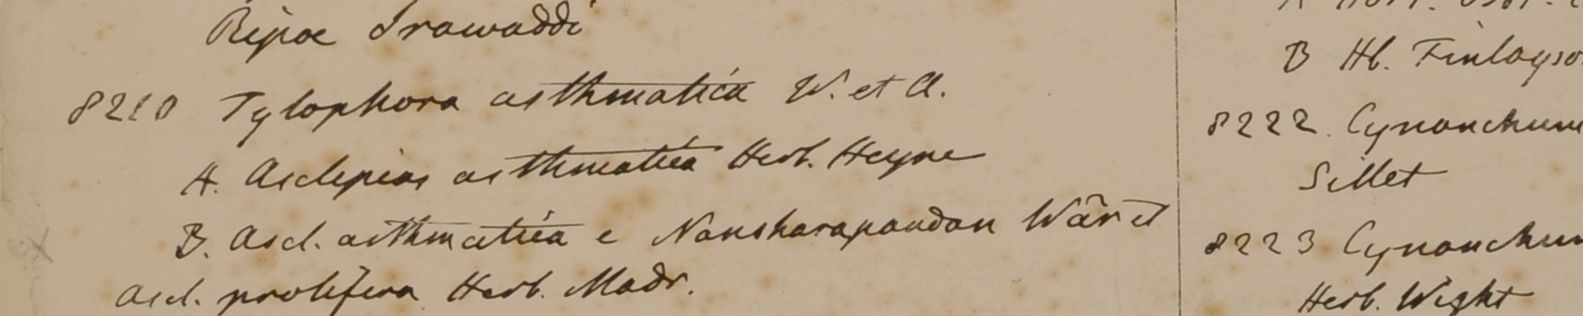 Ripae Irawaddi
8210 Tylophora asthmatica W. et A.
A. Asclepias asthmatica Herb. Heyne
B. Ascl. asthmatica e Nansharapandan Wār et
Ascl. prolifera Herb. Madr.
B Hb. Finlayso
8222. Cynanchum
Sillet
8223 Cynanchum
Herb. Wight